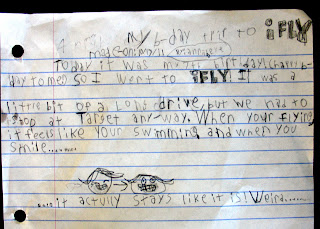 my b-day trip to iFLY
Today it was my 7th birthday(happy b-
day to me) so I went to iFLY! It was a
little bit of a long drive, but we had to
stop at Target any-way. When your flying
it feels like your swimming and when you
smile.......
....it actully stays like it is! Weird......